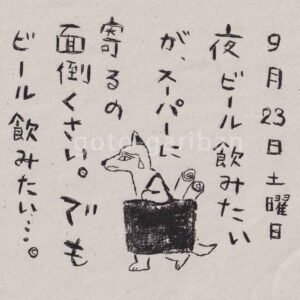 9月23日土曜日
夜ビール飲みたい
が、スーパーに
寄るの
面倒くさい。でも
ビール飲みたい…。